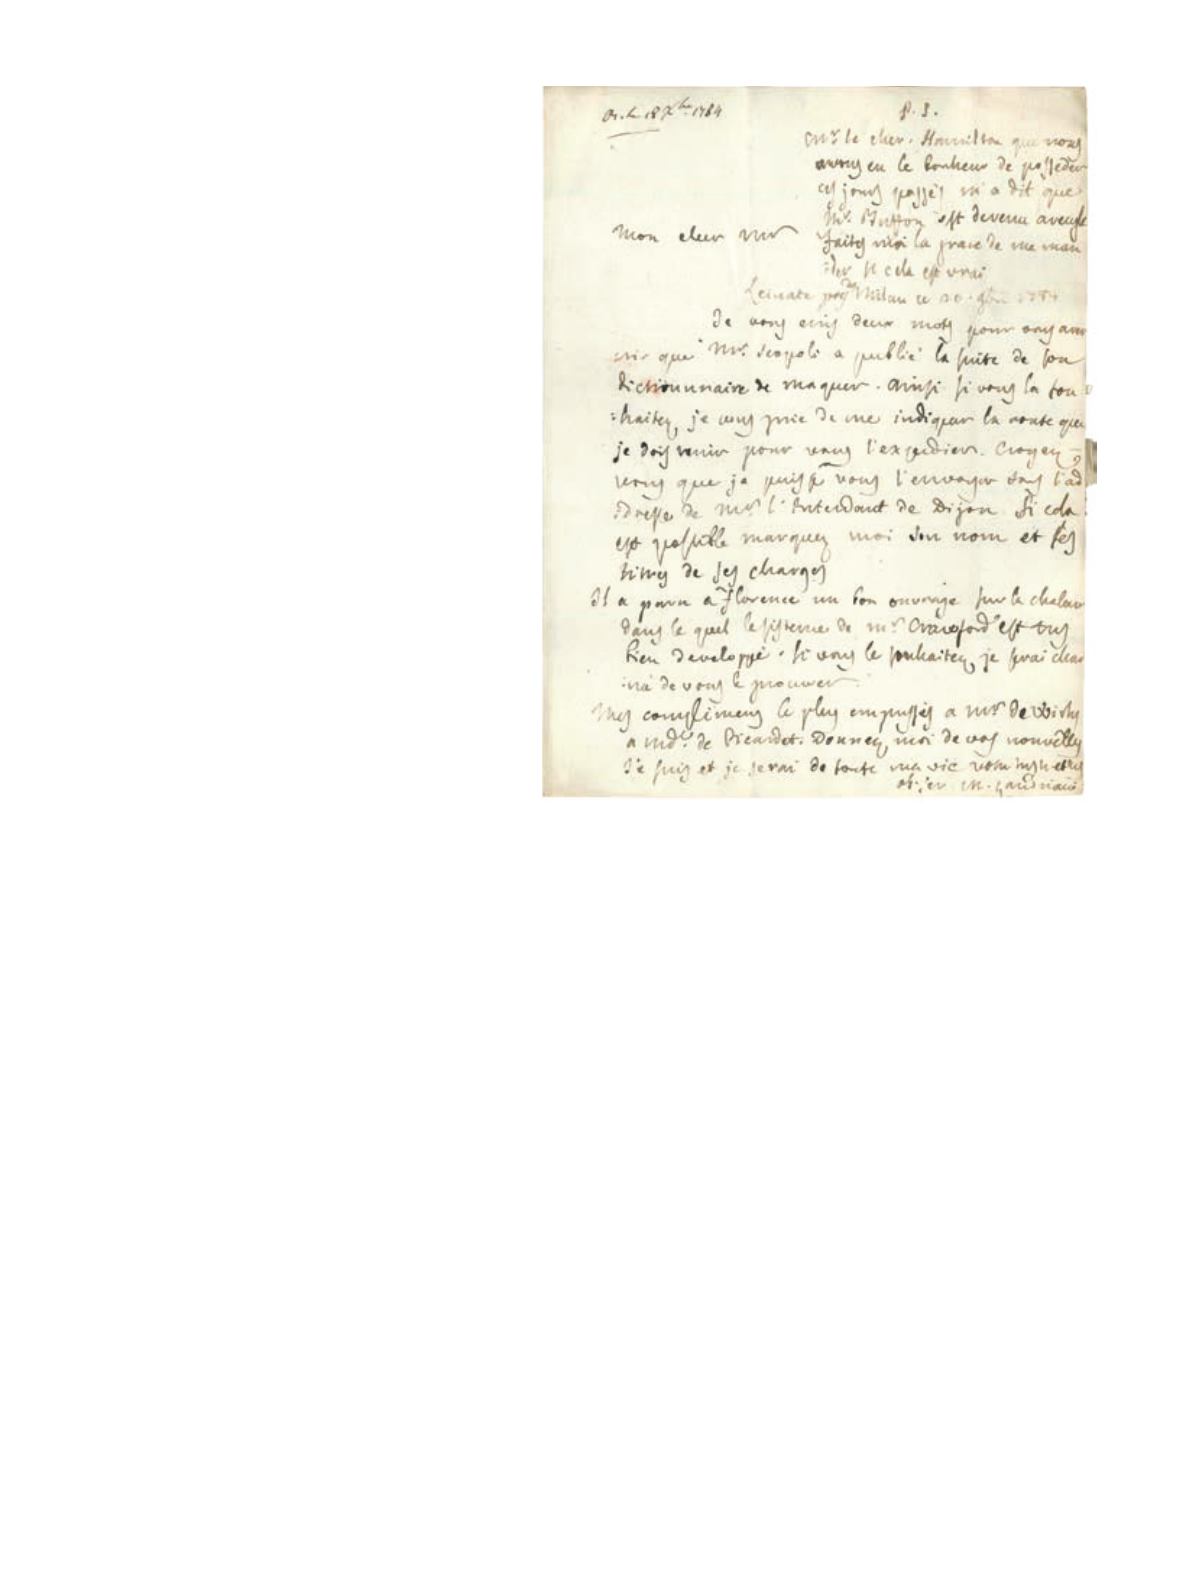 18 Xbre 1784
P. S.
Mr. le chev. Hamilton que nous
avons eu le bonheur de posseder
ces jours passés m'a dit que
Mr. Buffon est devenu aveugle
faites moi la grace de me man
:der si cela est vrai
Mon cher Mr
Milan ce 20
Je vous ecris deux mots pour vous aver
:nir que Mr. Scopoli a publié la suite de son
dictionnaire de maquer. Ainsi si vous la sou
:haitez, je vous prie de me indiquer la route que
je dois tenir pour vous l'expedier. Croyez
vous que je puisse vous l'envoyer sous l'ad
:dresse de Mr. l'Intendant de Dijon. Si cela
est possible marquez moi son nom et les
titres de ses charges
Il a paru a Florence un bon ouvrage sur la chaleur
dans le quel le sisteme de mr. Crawford est tres
bien developpé. Si vous le souhaitez, je serai char
:mé de vous le prouver.
Mes complimens le plus empressés a Mr. de Virly
a Mde. de Picardet. Donnez moi de vos nouvelles
Je suis et je serai de toute ma vie votre